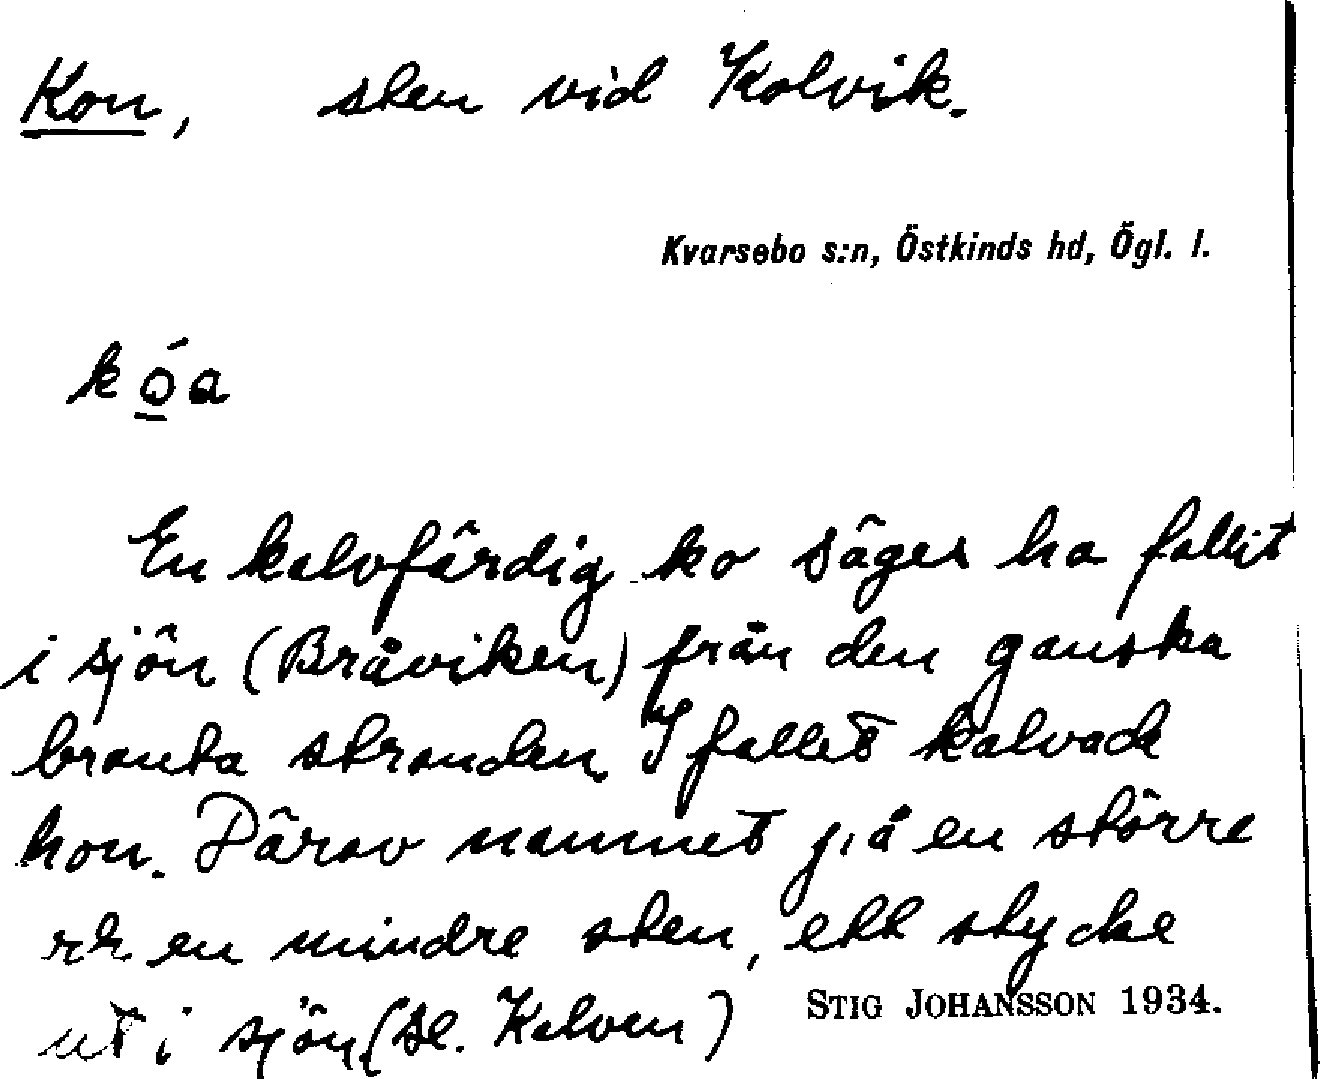 Kon, sten vid Kolvik.
Kvarsebo s:n, Östkinds hd, Ögl. l.
kóa
En kalvfärdig ko säges ha fallit
i sjön (Bråviken) från den ganska
branta stranden. I fallet kalvade
hon. Därav namnet på en större
och en mindre sten, ett stycke
ut i sjön (se. Kalven)
STIG JOHANSSON 1934.